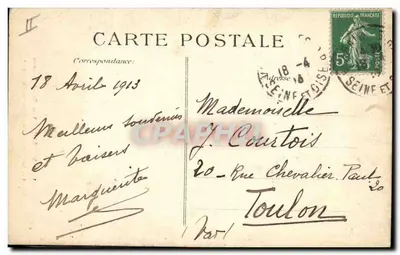 II
CARTE POSTALE
Correspondance:
Adresse
REPUBLIQUE FRANÇAISE
5c
18-4
SEINE ET OISE
SEINE ET O
18 Avril 1913
Meilleurs souvenirs
et baisers
Marguerite
Mademoiselle
J. Courtois
20 - Rue Chevalier Paul
20
Toulon
(Var)
CPARAMA